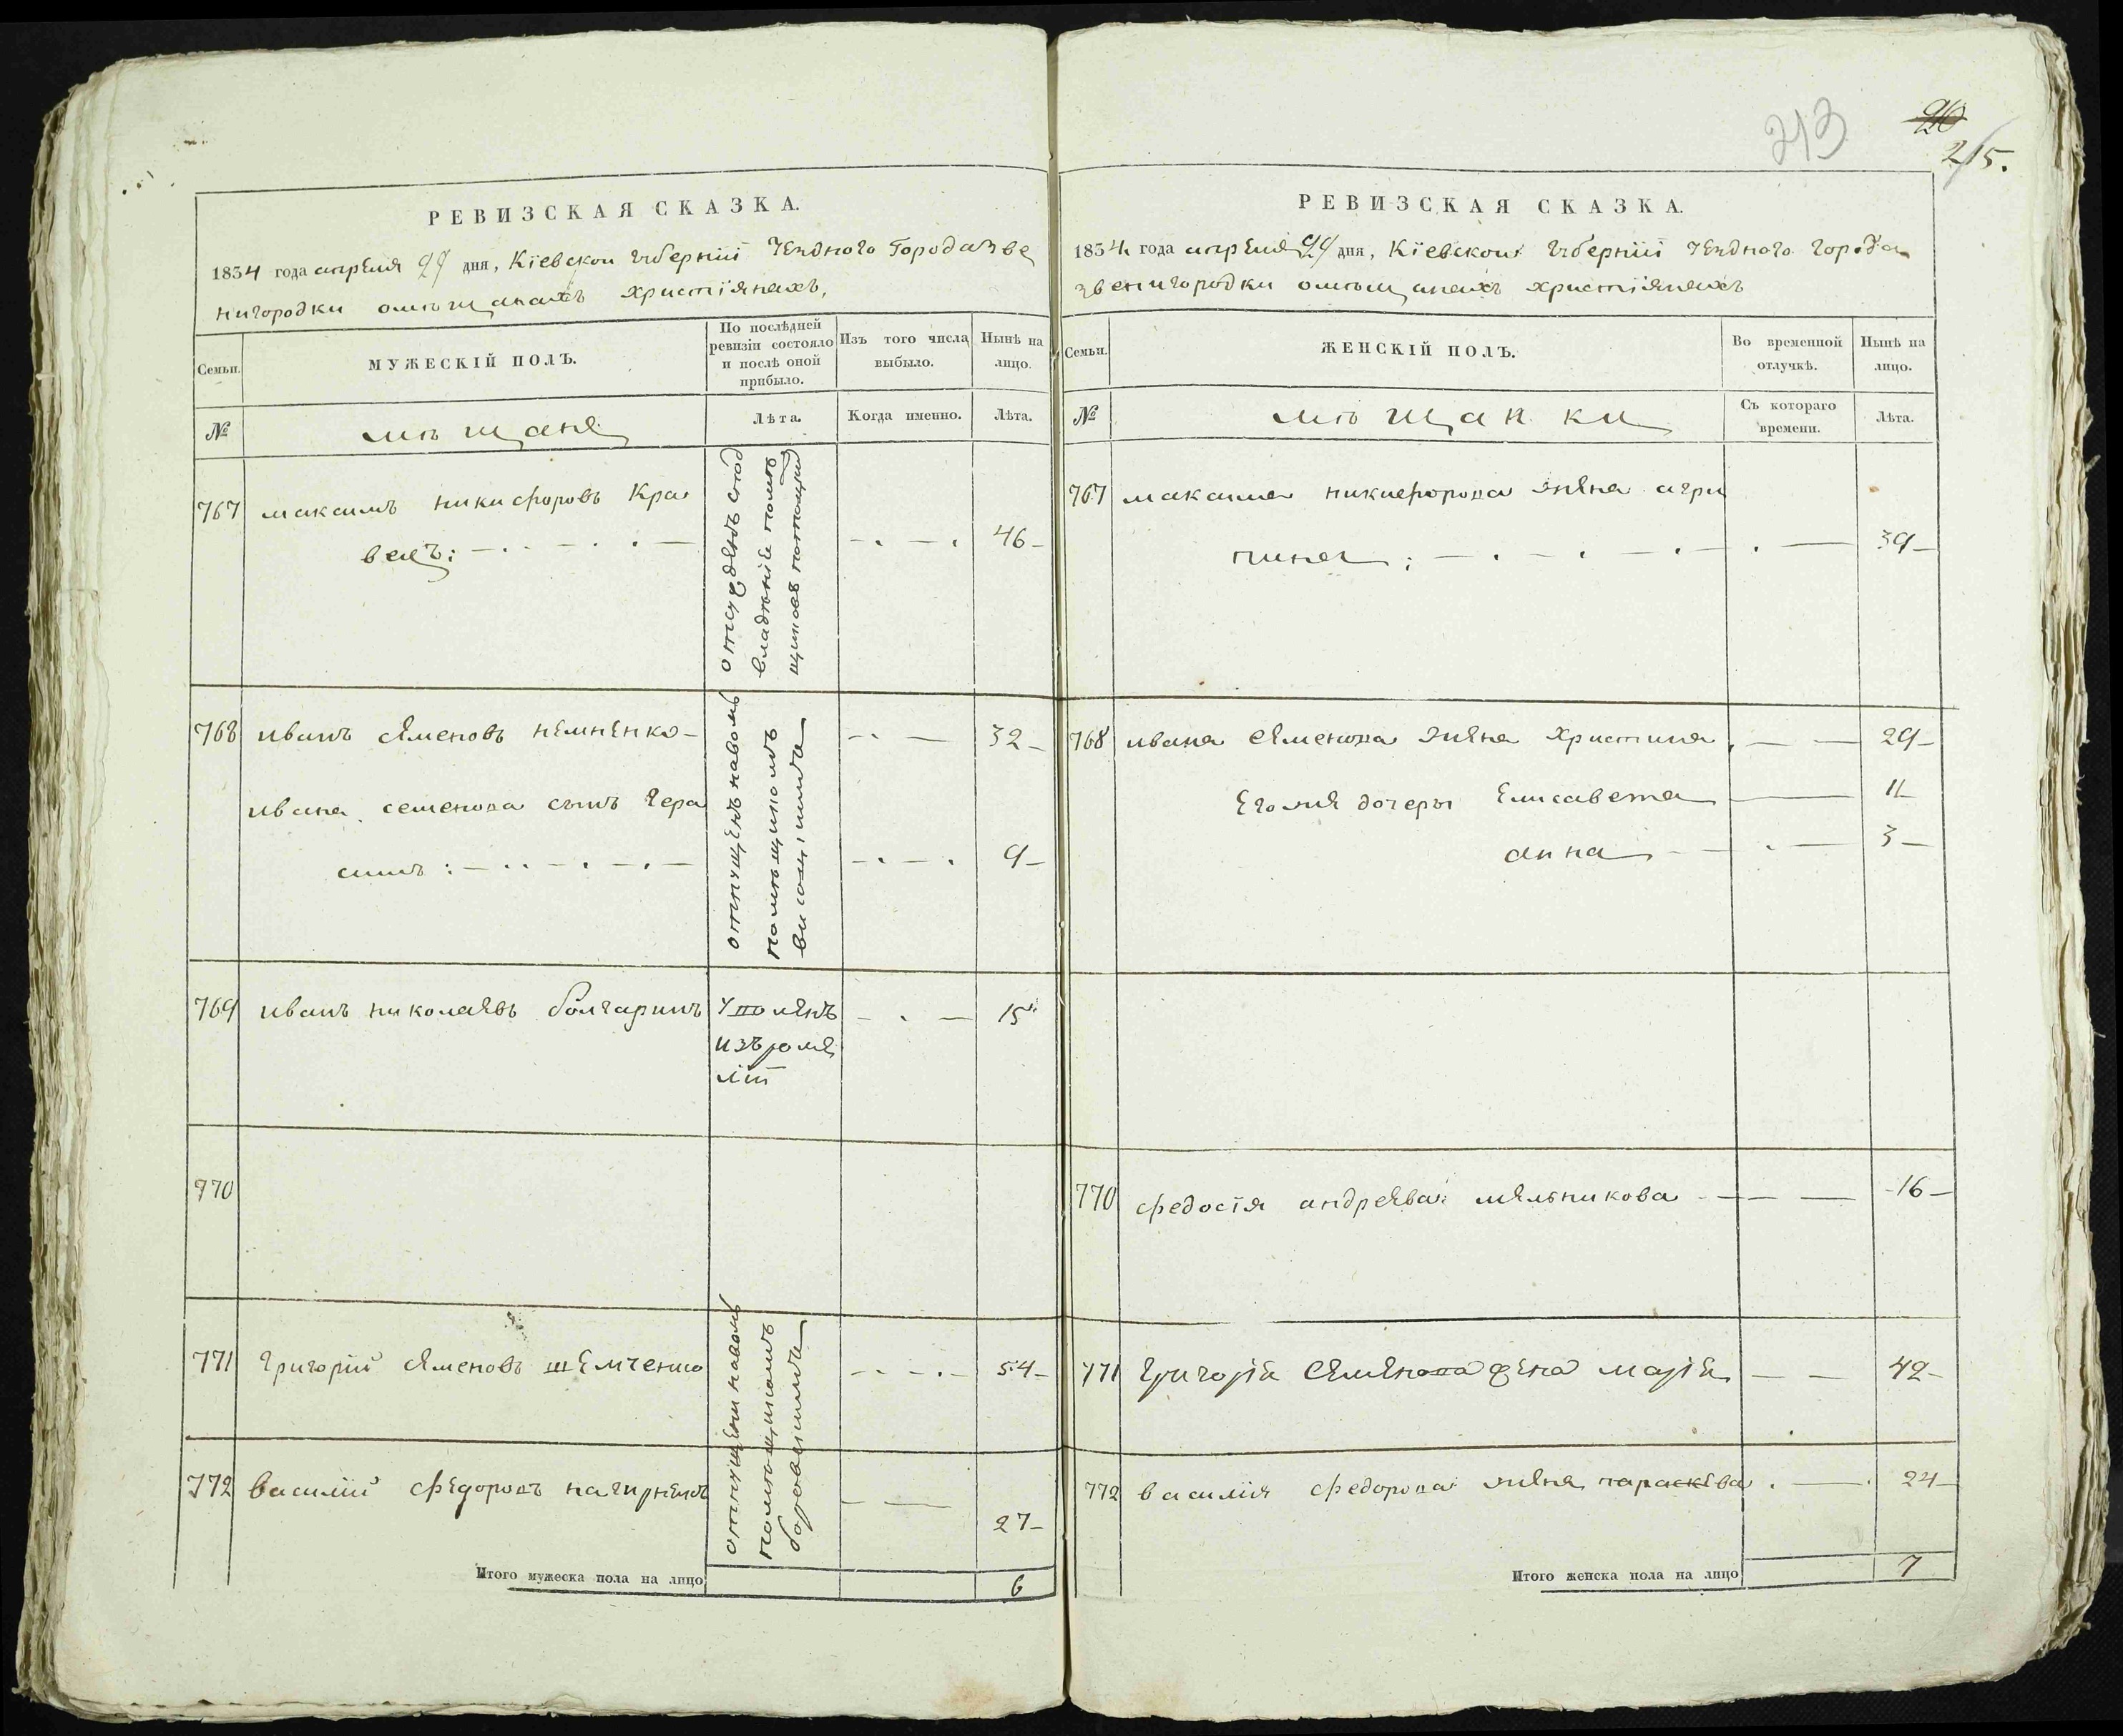 213
215.
РЕВИЗСКАЯ СКАЗКА.
1834 года апреля 29 дня, Кіевской губерніи уездного города Зве
нигородки омѣщанахъ христіянахъ,
Семьи.
МУЖЕСКІЙ ПОЛЪ.
По послѣдней
ревизіи состояло
и послѣ оной
прибыло.
Изъ того числа
выбыло.
Нынѣ на
лицо.
№
мѣщане
Лѣта.
Когда именно.
Лѣта.
767 максимъ никифоровъ Кра
вецъ: 46
владѣніе помѣ
768 иванъ семеновъ немненко 32
ивана семенова сынъ Гера
симъ: 9
отпущенъ наволю
помѣщикомъ
769 иванъ николаевъ болгаринъ 15
изъроме
770
771 Григорій семеновъ шемченко 54
772 василій федоровъ нагирнякъ 27
отпущени наволю
помѣщикомъ
Итого мужеска пола на лицо 6
РЕВИЗСКАЯ СКАЗКА.
1834 года апреля 29 дня, Кіевской губерніи уездного города
звенигородки омѣщанахъ христіянахъ
Семьи.
ЖЕНСКІЙ ПОЛЪ.
Во временной
отлучкѣ.
Нынѣ на
лицо.
№
мѣщанки
Съ котораго
времени.
Лѣта.
767 максима никифорова жена агри
пина: 39
768 ивана семенова жена христина 29
Егоже дочеры Елисавета 11
анна 3
770 федосія андреева мельникова 16
771 Григорія семенова жена марія 42
772 василія федорова жена параскева 24
Итого женска пола на лицо 7